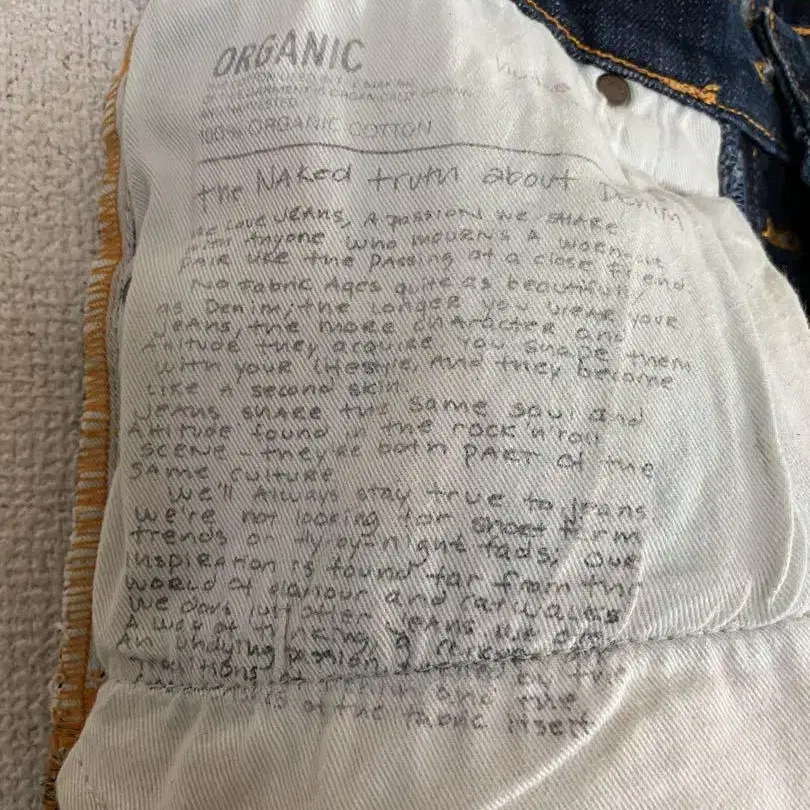 ORGANIC
100% ORGANIC COTTON
the NAKed truth about Denim
We Love Jeans, A passion we share
with Anyone who mourns A worn-out
pair like the passing of a close friend.
No fabric Ages quite as beautifully
as Denim; the longer you wear your
Jeans, the more character and
Attitude they acquire. You shape them
with your lifestyle, and they become
Like A second skin.
Jeans share the same soul and
Attitude found in the rock'n'roll
scene - they're both PART of the
same culture
We'll Always stay true to jeans
we're not looking for short term
trends or fly-by-night fads; Our
inspiration is found far from the
World of glamour and catwalks
An undying passion
traditions of by the
of the fabric itself